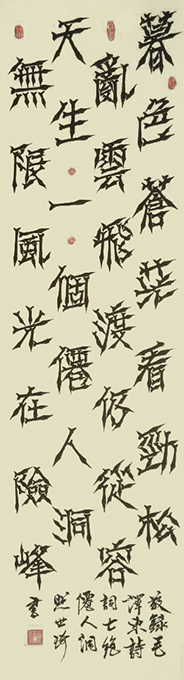 暮色蒼茫看勁松
亂雲飛渡仍從容
天生一個僊人洞
無限風光在險峰
敬録毛
澤東詩
詞七絕
僊人洞
書